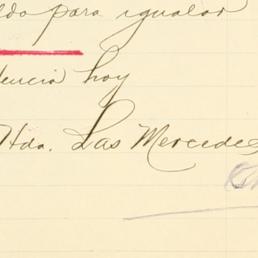 ldo para igualar
dencia hoy
Hda. Las Mercedes